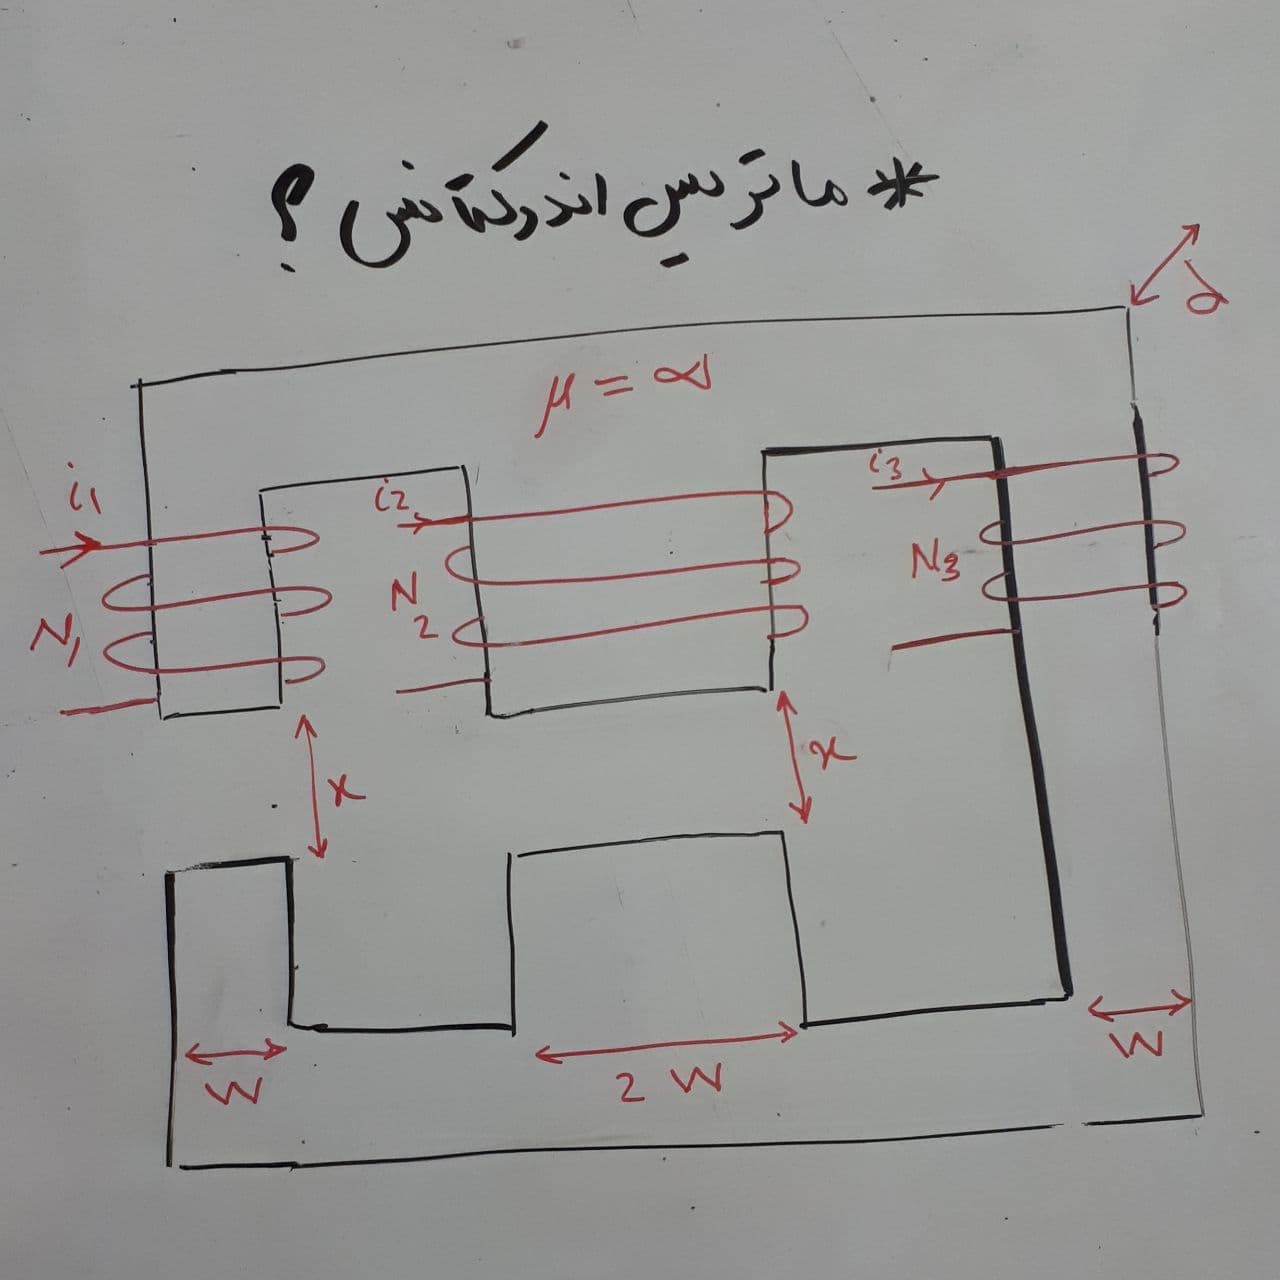 * ماتریس اندوکتانس ؟
d
μ = ∞
i1
i2
i3
N1
N2
N3
x
x
W
2 W
W